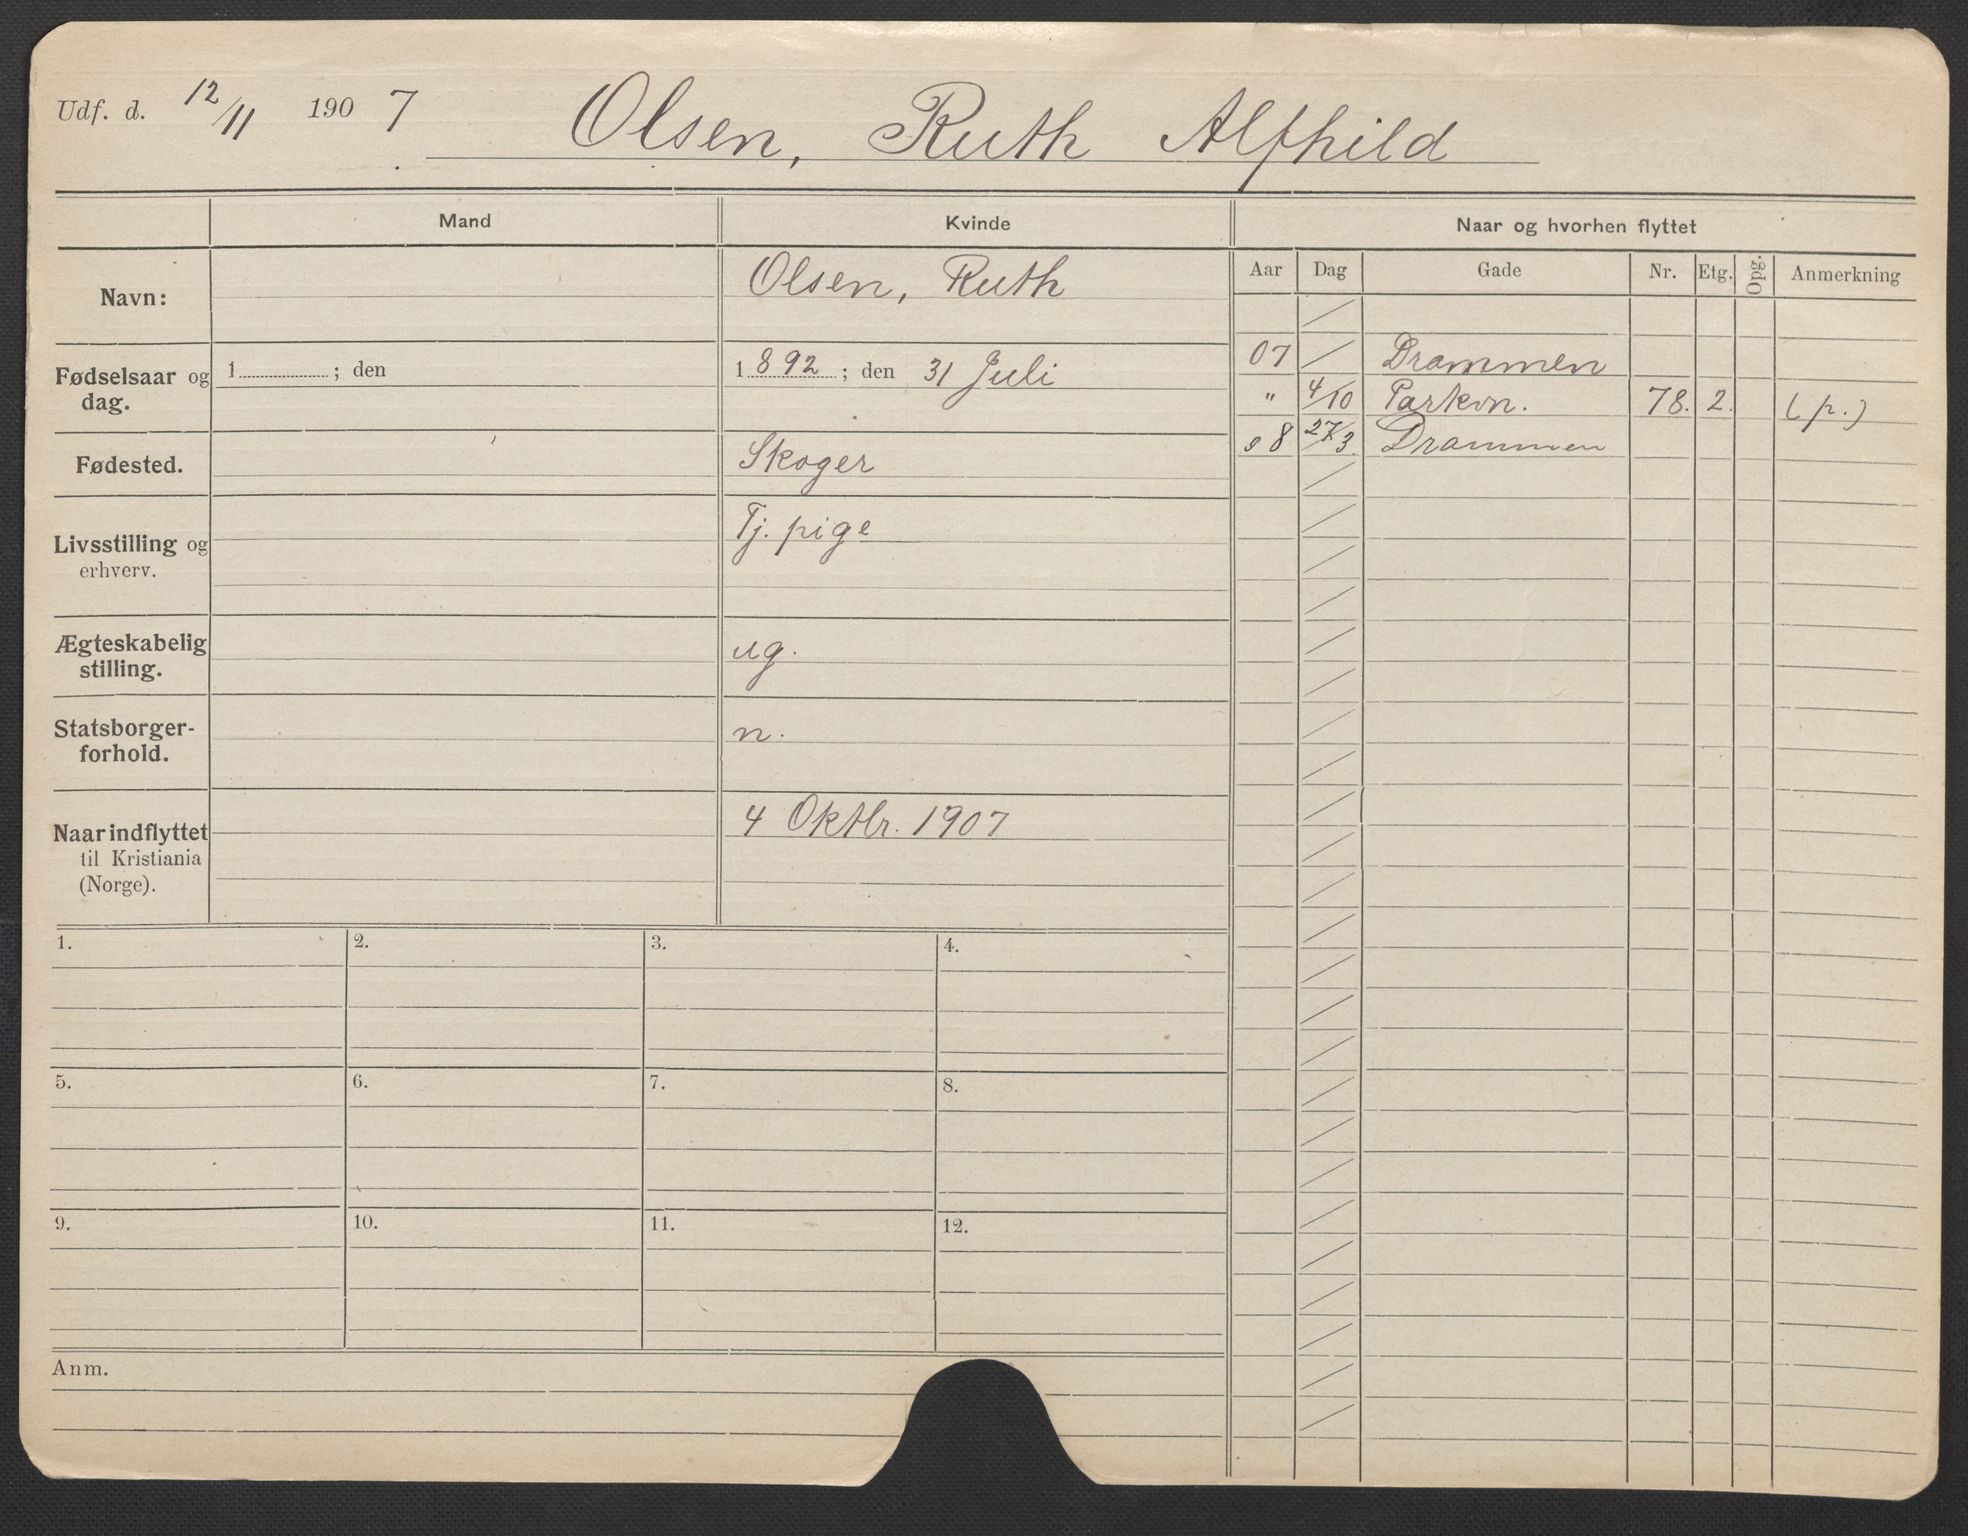 Udf. d. 12/11 1907 Olsen, Ruth Alfhild
Mand Kvinde Naar og hvorhen flyttet
Aar Dag Gade Nr. Etg. Opg. Anmerkning
Navn: Olsen, Ruth
Fødselsaar og dag. 1 ; den 1892 ; den 31 Juli
Fødested. Skoger
Livsstilling og erhverv. Tj. pige
Ægteskabelig stilling. ug.
Statsborger-forhold. n.
Naar indflyttet til Kristiania (Norge). 4 Oktbr. 1907
07 Drammen
" 4/10 Parkvn. 78. 2. (p.)
08 27/3. Drammen
1. 2. 3. 4.
5. 6. 7. 8.
9. 10. 11. 12.
Anm.